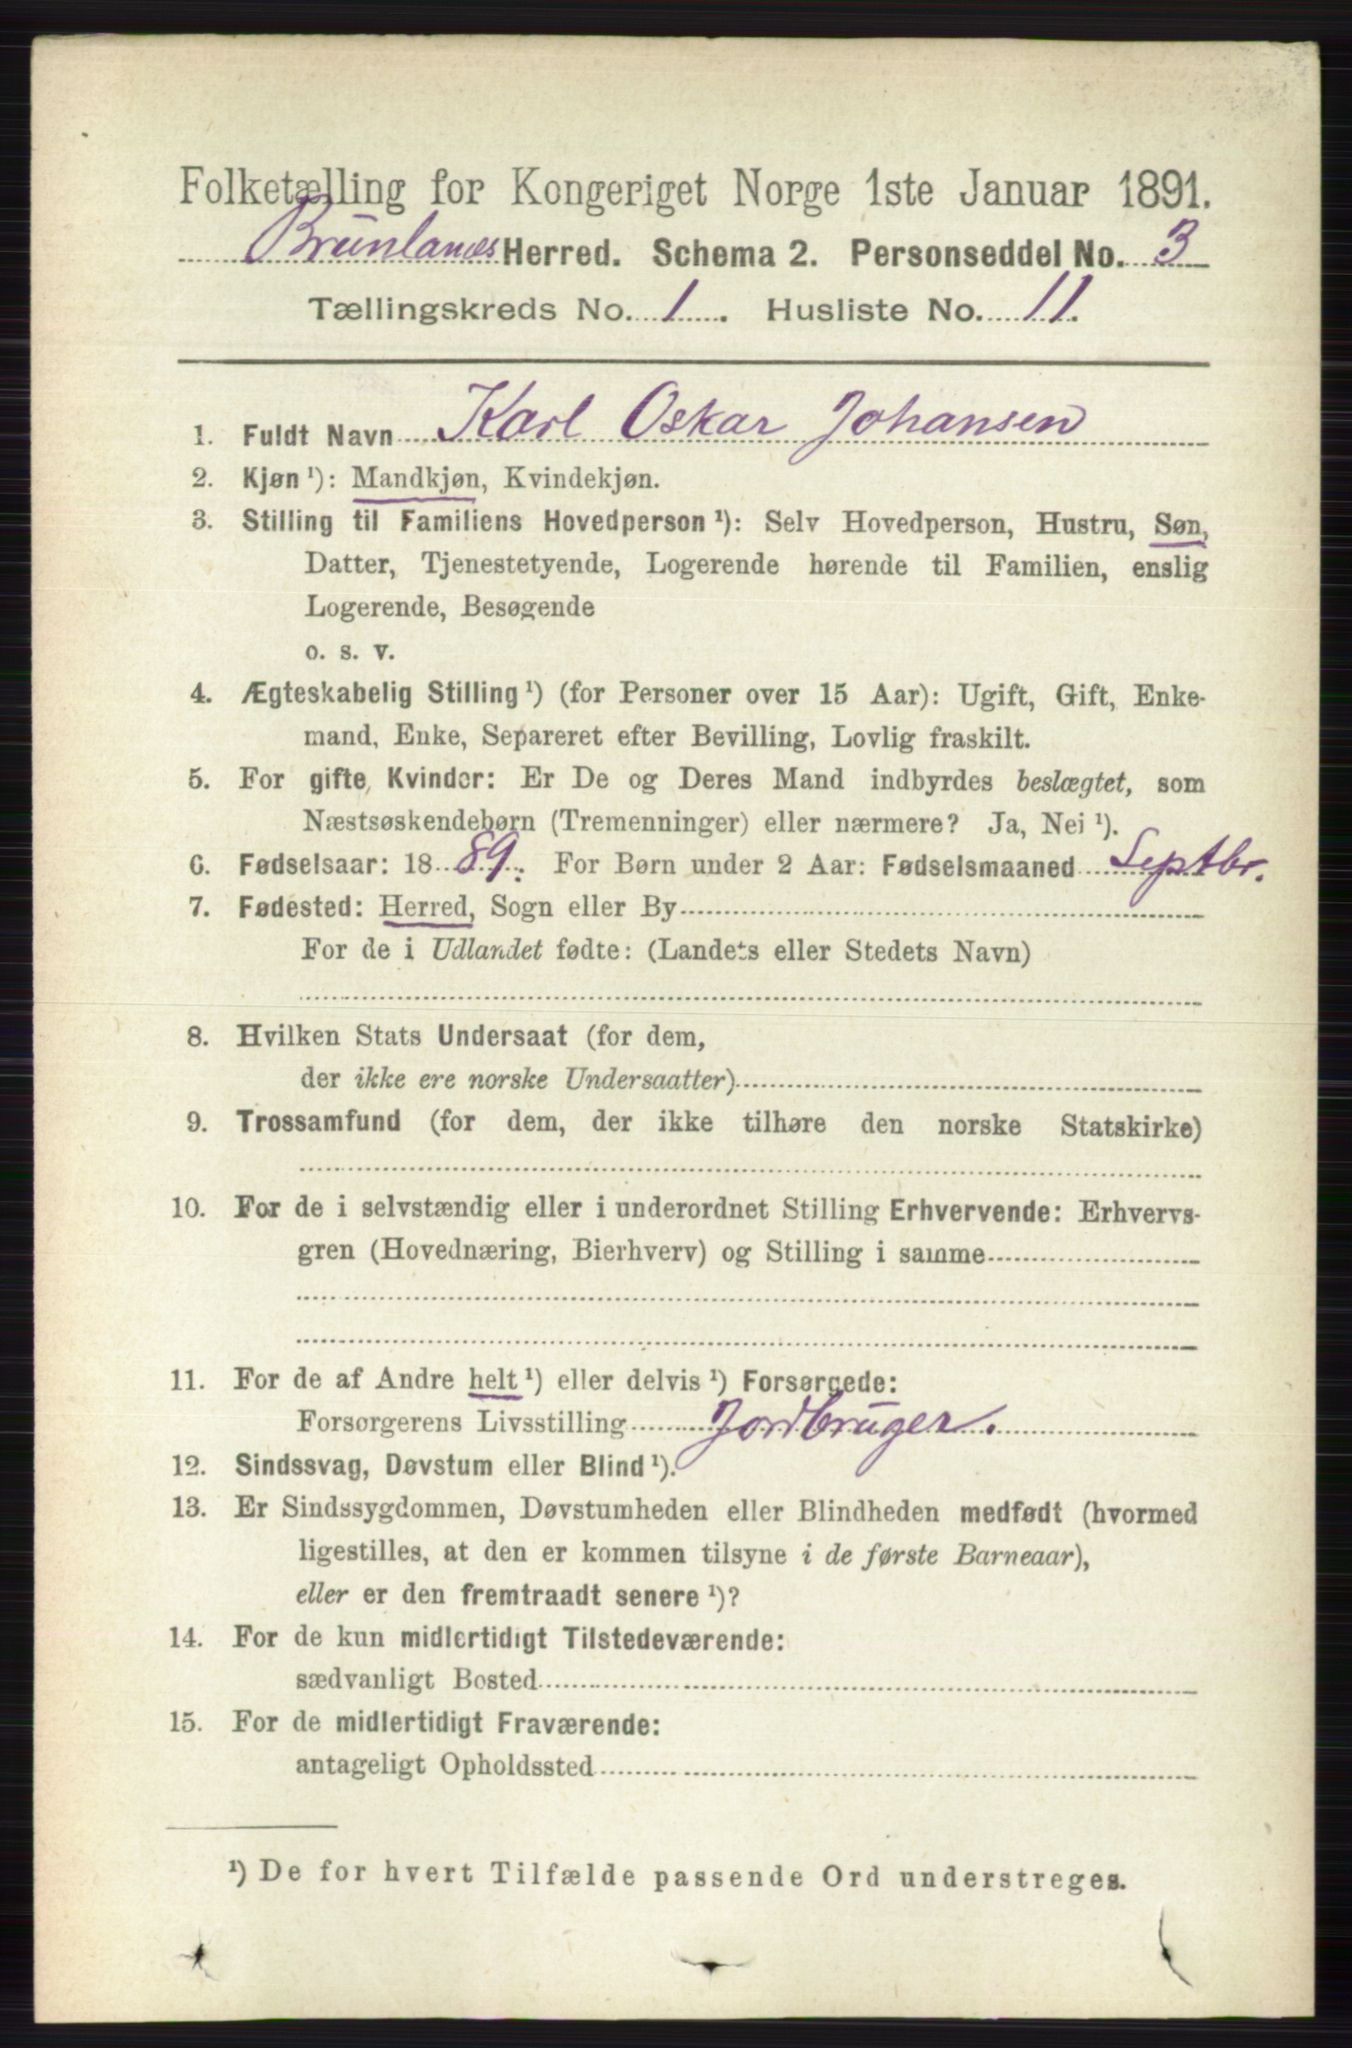 Folketælling for Kongeriget Norge 1ste Januar 1891.
Brunlanes Herred. Schema 2. Personseddel No. 3
Tællingskreds No. 1. Husliste No. 11.
1. Fuldt Navn Karl Oskar Johansen
2. Kjøn ¹): Mandkjøn, Kvindekjøn.
3. Stilling til Familiens Hovedperson ¹): Selv Hovedperson, Hustru, Søn,
Datter, Tjenestetyende, Logerende hørende til Familien, enslig
Logerende, Besøgende
o. s. v.
4. Ægteskabelig Stilling ¹) (for Personer over 15 Aar): Ugift, Gift, Enke-
mand, Enke, Separeret efter Bevilling, Lovlig fraskilt.
5. For gifte Kvinder: Er De og Deres Mand indbyrdes beslægtet, som
Næstsøskendebørn (Tremenninger) eller nærmere? Ja, Nei ¹).
6. Fødselsaar: 18 89. For Børn under 2 Aar: Fødselsmaaned Septbr.
7. Fødested: Herred, Sogn eller By
For de i Udlandet fødte: (Landets eller Stedets Navn)
8. Hvilken Stats Undersaat (for dem,
der ikke ere norske Undersaatter)
9. Trossamfund (for dem, der ikke tilhøre den norske Statskirke)
10. For de i selvstændig eller i underordnet Stilling Erhvervende: Erhvervs-
gren (Hovednæring, Bierhverv) og Stilling i samme
11. For de af Andre helt ¹) eller delvis ¹) Forsørgede:
Forsørgerens Livsstilling Jordbruger.
12. Sindssvag, Døvstum eller Blind ¹).
13. Er Sindssygdommen, Døvstumheden eller Blindheden medfødt (hvormed
ligestilles, at den er kommen tilsyne i de første Barneaar),
eller er den fremtraadt senere ¹)?
14. For de kun midlertidigt Tilstedeværende:
sædvanligt Bosted
15. For de midlertidigt Fraværende:
antageligt Opholdssted
¹) De for hvert Tilfælde passende Ord understreges.